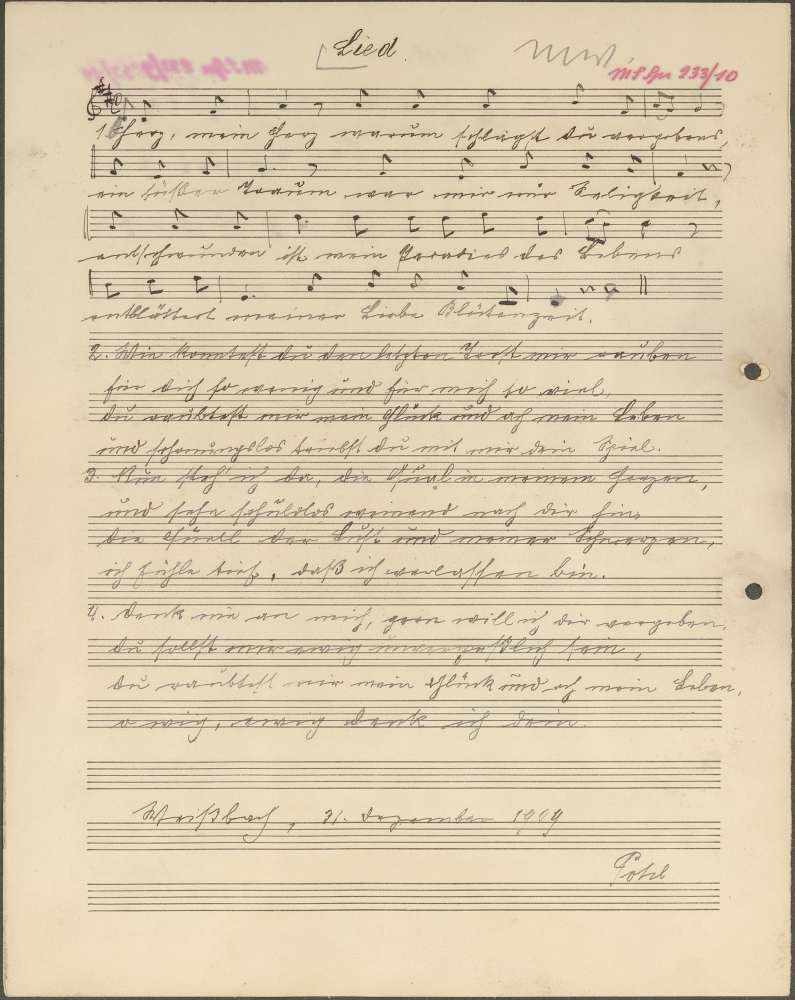 Lied
MS Gu 233/10
1. Herz, mein Herz warum schlägst du vergebens,
ein süßer Traum war mir nur Seligkeit,
entschwunden ist mein Paradies des Lebens
entblättert meiner Liebe Blütenzeit.
2. Wie konntest du den letzten Trost mir rauben
für dich so wenig und für mich so viel,
du raubtest mir mein Glück und ach mein Leben
und schonungslos triebst du mit mir dein Spiel.
3. Nun steh' ich da, die Qual in meinem Herzen,
und sehe schuldlos weinend nach dir hin,
die Quell der Lust und meiner Schmerzen,
ich fühle tief, daß ich verlassen bin.
4. Denk nie an mich, gern will ich dir vergeben,
du sollst mir ewig unvergeßlich sein,
du raubtest mir mein Glück und ach mein Leben,
o ewig, ewig denk ich dein.
Weißbach, 31. Dezember 1919